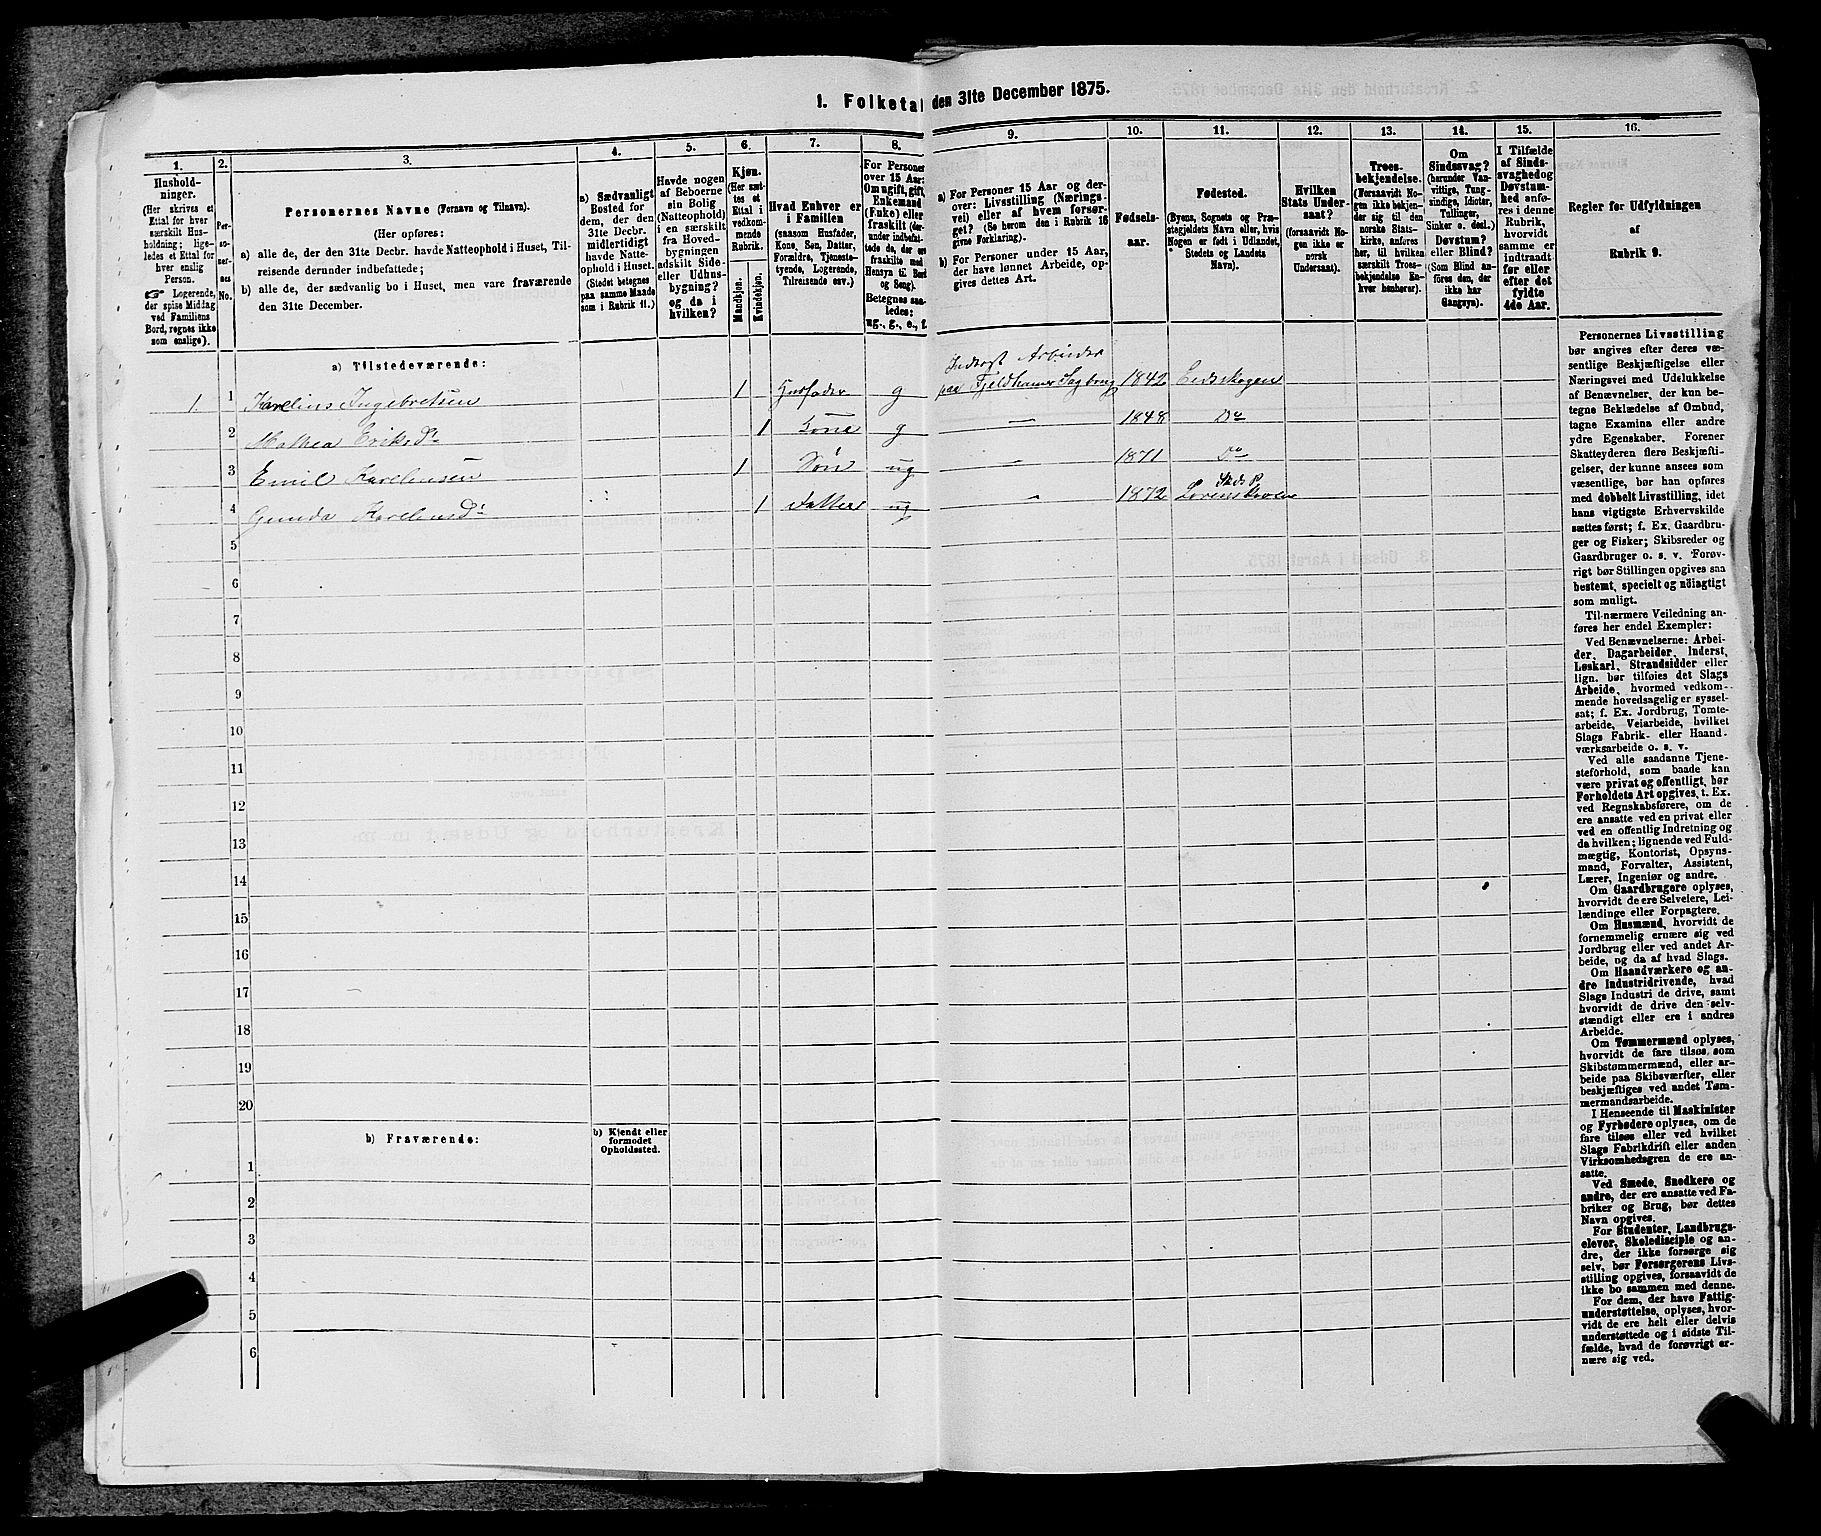 1. Folketal den 31te December 1875.
1. 2. 3. 4. 5. 6. 7. 8. 9. 10. 11. 12. 13. 14. 15. 16.
Hushold-
ninger.
(Her skrives et
Ettal for hver
særskilt Hus-
holdning; lige-
ledes et Ettal for
hver enslig
Person.
☞ Logerende,
der spise Middag
ved Familiens
Bord, regnes ikke
som enslige).
Per-
so-
ner-
nes
No.
Personernes Navne (Fornavn og Tilnavn).
(Her opføres:
a) alle de, der den 31te Decbr. havde Natteophold i Huset, Til-
reisende derunder indbefattede;
b) alle de, der sædvanlig bo i Huset, men vare fraværende
den 31te December.
a) Sædvanligt
Bosted for
dem, der den
31te Decbr.
midlertidigt
havde Natte-
ophold i Huset.
(Stedet betegnes
paa samme Maade
som i Rubrik 11.)
Havde nogen
af Beboerne
sin Bolig
(Natteophold)
i en særskilt
fra Hoved-
bygningen
adskilt Side-
eller Udhus-
bygning?
og da i
hvilken?
Kjøn.
(Her sæt-
tes et
Ettal i
vedkom-
mende
Rubrik.
Mandkjøn.
Kvindekjøn.
Hvad Enhver er
i Familien
(saasom Husfader,
Kone, Søn, Datter,
Forældre, Tjeneste-
tyende, Logerende,
Tilreisende osv.)
For Personer
over 15 Aar:
Om ugift, gift,
Enkemand
(Enke) eller
fraskilt (der-
under indbefat-
tede de, der er
fraskilte med
Hensyn til Bord
og Seng).
Betegnes saa-
ledes:
ug., g., e., f.
a) For Personer 15 Aar og der-
over: Livsstilling (Nærings-
vei) eller af hvem forsør-
get? (Se herom den i Rubrik 16
givne Forklaring).
b) For Personer under 15 Aar,
der have lønnet Arbeide, op-
gives dettes Art.
Fødsels-
aar.
Fødested.
(Byens, Sognets og Præ-
stegjeldets Navn eller, hvis
Nogen er født i Udlandet,
Stedets og Landets
Navn).
Hvilken
Stats Under-
saat?
(forsaavidt No-
gen ikke er
norsk
Undersaat).
Troes-
bekjendelse.
(Forsaavidt No-
gen ikke bekjen-
der sig til den
norske Stats-
kirke, anføres
her, til hvilken
særskilt Troes-
bekjendelse En-
hver henhører).
Om
Sindssvag?
(herunder Van-
vittige, Tung-
sindige, Idioter,
Tullinger,
Sinker o. desl.)
Døvstum?
eller Blind?
(Som Blind an-
føres den, der
ikke har
Gangsyn).
I Tilfælde
af Sinds-
svaghed og
Døvstum-
hed anfø-
res i denne
Rubrik,
hvorvidt
samme er
indtraadt
før eller
efter det
fyldte
4de Aar.
Regler for Udfyldningen
af
Rubrik 9.
a) Tilstedeværende:
Inderst Arbeider
1. 1 Karelius Ingebretsen 1 Husfader g paa Fjeldhamer Sagbrug 1842 Eidsskogen
2 Mathea Eriksd. 1 Kone g — 1848 Do
3 Emil Karelinsen 1 Søn ug — 1871 Do
4 Gunda Karelinsd. 1 Datter ug — 1872 Lørenskoven
5
6
7
8
9
10
11
12
13
14
15
16
17
18
19
20
b) Fraværende:
b) Kjendt eller
formodet
Opholdssted.
1
2
3
4
5
6
Personernes Livsstilling
bør angives efter deres væ-
sentlige Beskjæftigelse eller
Næringsvei med Udelukkelse
af Benævnelser, der kun be-
tegne Beklædelse af Ombud,
tagne Examina eller andre
ydre Egenskaber. Forener
Skatteyderen flere Beskjæfti-
gelser, der kunne ansees som
væsentlige, bør han opføres
med dobbelt Livsstilling, idet
hans vigtigste Erhvervskilde
sættes først; f. Ex. Gaardbru-
ger og Fisker; Skibsreder og
Gaardbruger o. s. v. Forøv-
rigt bør Stillingen opgives saa
bestemt, specielt og nöiagtigt
som muligt.
Til nærmere Veiledning an-
føres her endel Exempler:
Ved Benævnelserne: Arbei-
der, Dagarbeider, Inderst,
Løskarl, Strandsidder eller
lign. bør tilføies det Slags
Arbeide, hvormed vedkom-
mende hovedsagelig er syssel-
sat; f. Ex. Jordbrug, Tomte-
arbeide, Veiarbeide, hvilket
Slags Fabrik- eller Haand-
værksarbeide o. s. v.
Ved alle saadanne Tjene-
steforhold, som baade kan
være privat og offentligt, bør
Forholdets Art opgives, t. Ex.
ved Regnskabsførere, om de
ere ansatte ved en privat eller
ved en offentlig Indretning og
da hvilken; lignende ved Fuld-
mægtig, Kontorist, Opsyns-
mand, Forvalter, Assistent,
Lærer, Ingeniør og andre.
Om Gaardbrugere oplyses,
hvorvidt de ere Selveiere, Lei-
lændinge eller Forpagtere.
Om Husmænd, hvorvidt de
fornemmelig ernære sig ved
Jordbrug eller ved andet Ar-
beide, og da af hvad Slags.
Om Haandværkere og an-
dre Industridrivende, hvad
Slags Industri de drive, samt
hvorvidt de drive den selv-
stændigt eller ere i andres
Arbeide.
Om Tømmermænd oplyses,
hvorvidt de fare tilsøs som
Skibstømmermænd, eller ar-
beide paa Skibsværfter, eller
beskjæftiges ved andet Tøm-
mermandsarbeide.
I Henseende til Maskinister
og Fyrbødere oplyses, om de
fare tilsøs eller ved hvilket
Slags Fabrikdrift eller anden
Virksomhedsgren de ere an-
satte.
Ved Smede, Snedkere og
andre, der ere ansatte ved Fa-
briker og Brug, bør dettes
Navn opgives.
For Studenter, Landbrugs-
elever, Skoledisciple og an-
dre, der ikke forsørge sig
selv, bør Forsørgerens Livs-
stilling opgives, forsaavidt de
ikke bo sammen med denne.
For dem, der have Fattig-
understøttelse, oplyses, hvor-
vidt de ere helt eller delvis
understøttede og i sidste Til-
fælde, hvad de forøvrigt er-
nære sig ved.